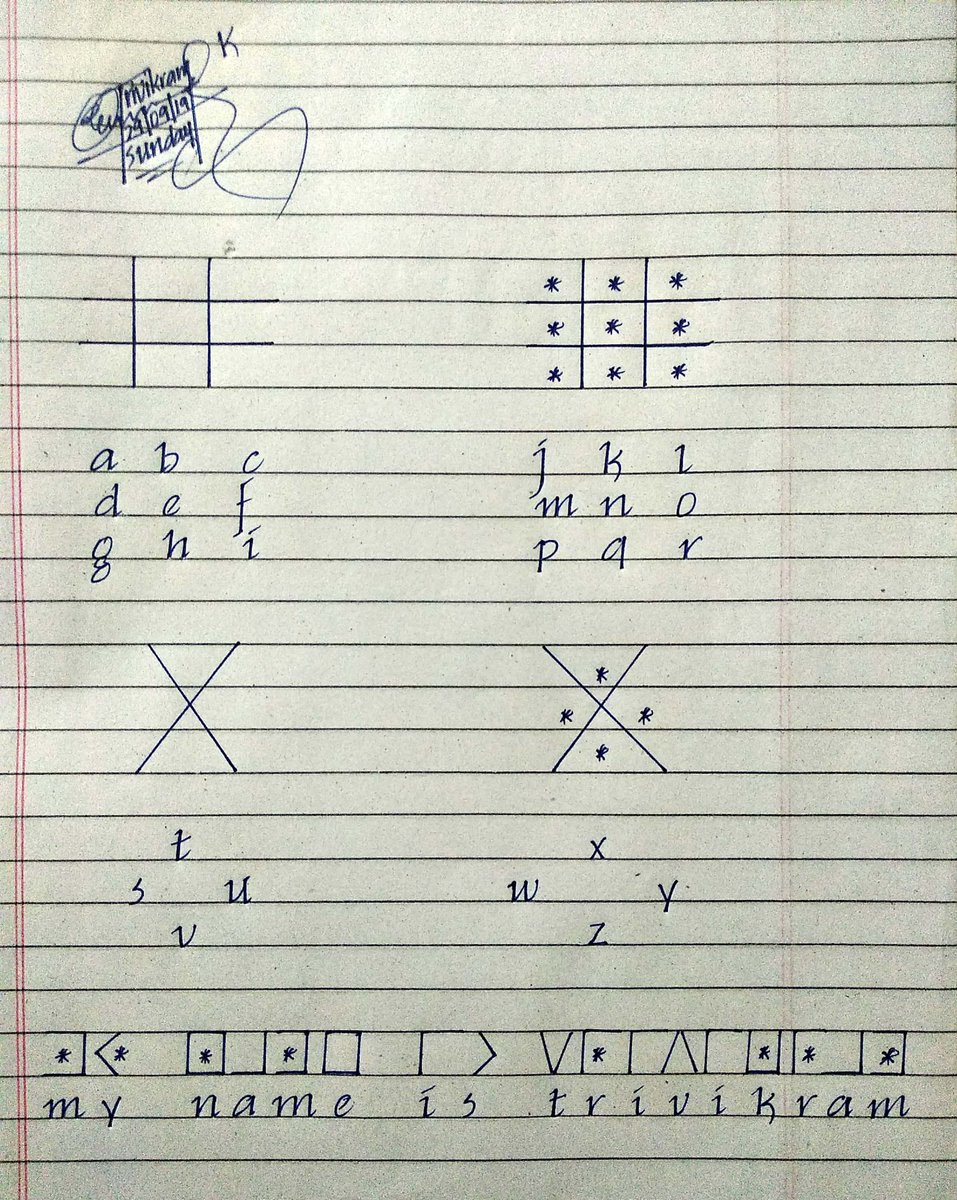 K
Trivikram
29/09/19
sunday
* * *
* * *
* * *
a b c
d e f
g h i
j k l
m n o
p q r
*
* *
*
t
s u
v
x
w y
z
my name is trivikram